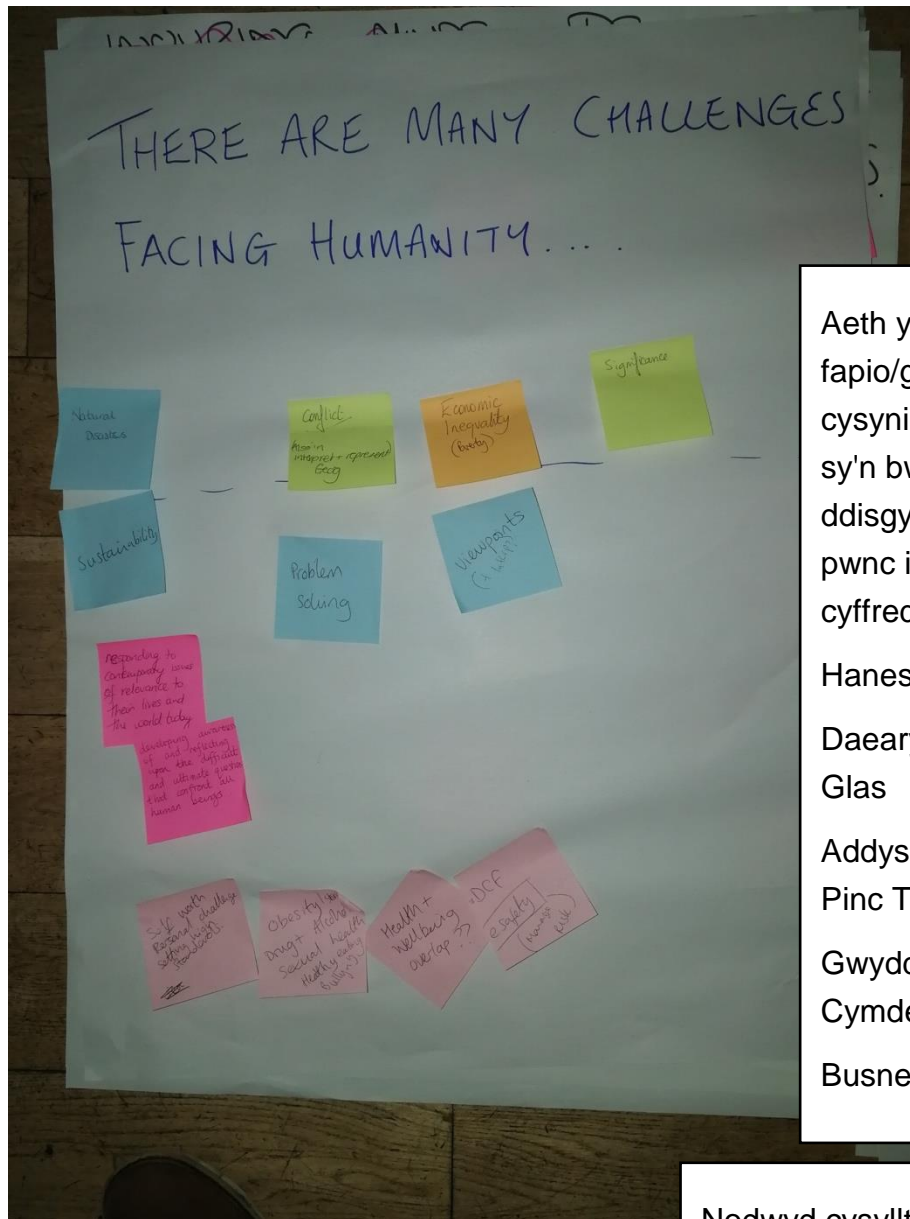 THERE ARE MANY CHALLENGES
FACING HUMANITY....
Natural
Disasters
Conflict.
Also in
interpret + represent)
Geog
Economic
Inequality
(Poverty)
Significance
Sustainability
Problem
Solving
Viewpoints
responding to
contemporary issues
of relevance to
their lives and
the world today
developing awareness
of and reflecting
upon the difficult
and ultimate question
that confront all
human beings
Self worth
Personal challenge
setting high
standards.
Obesity
Drug + Alcohol
Sexual health
Healthy eating
Bullying
Health +
wellbeing
overlap ??
DCF
esafety
(manage
risk)
Aeth y
fapio/g
cysyni
sy'n bw
ddisgy
pwnc i
cyffred
Hanes
Daeary
Glas
Addys
Pinc T
Gwydd
Cymde
Busne
Nodwyd cysyllt